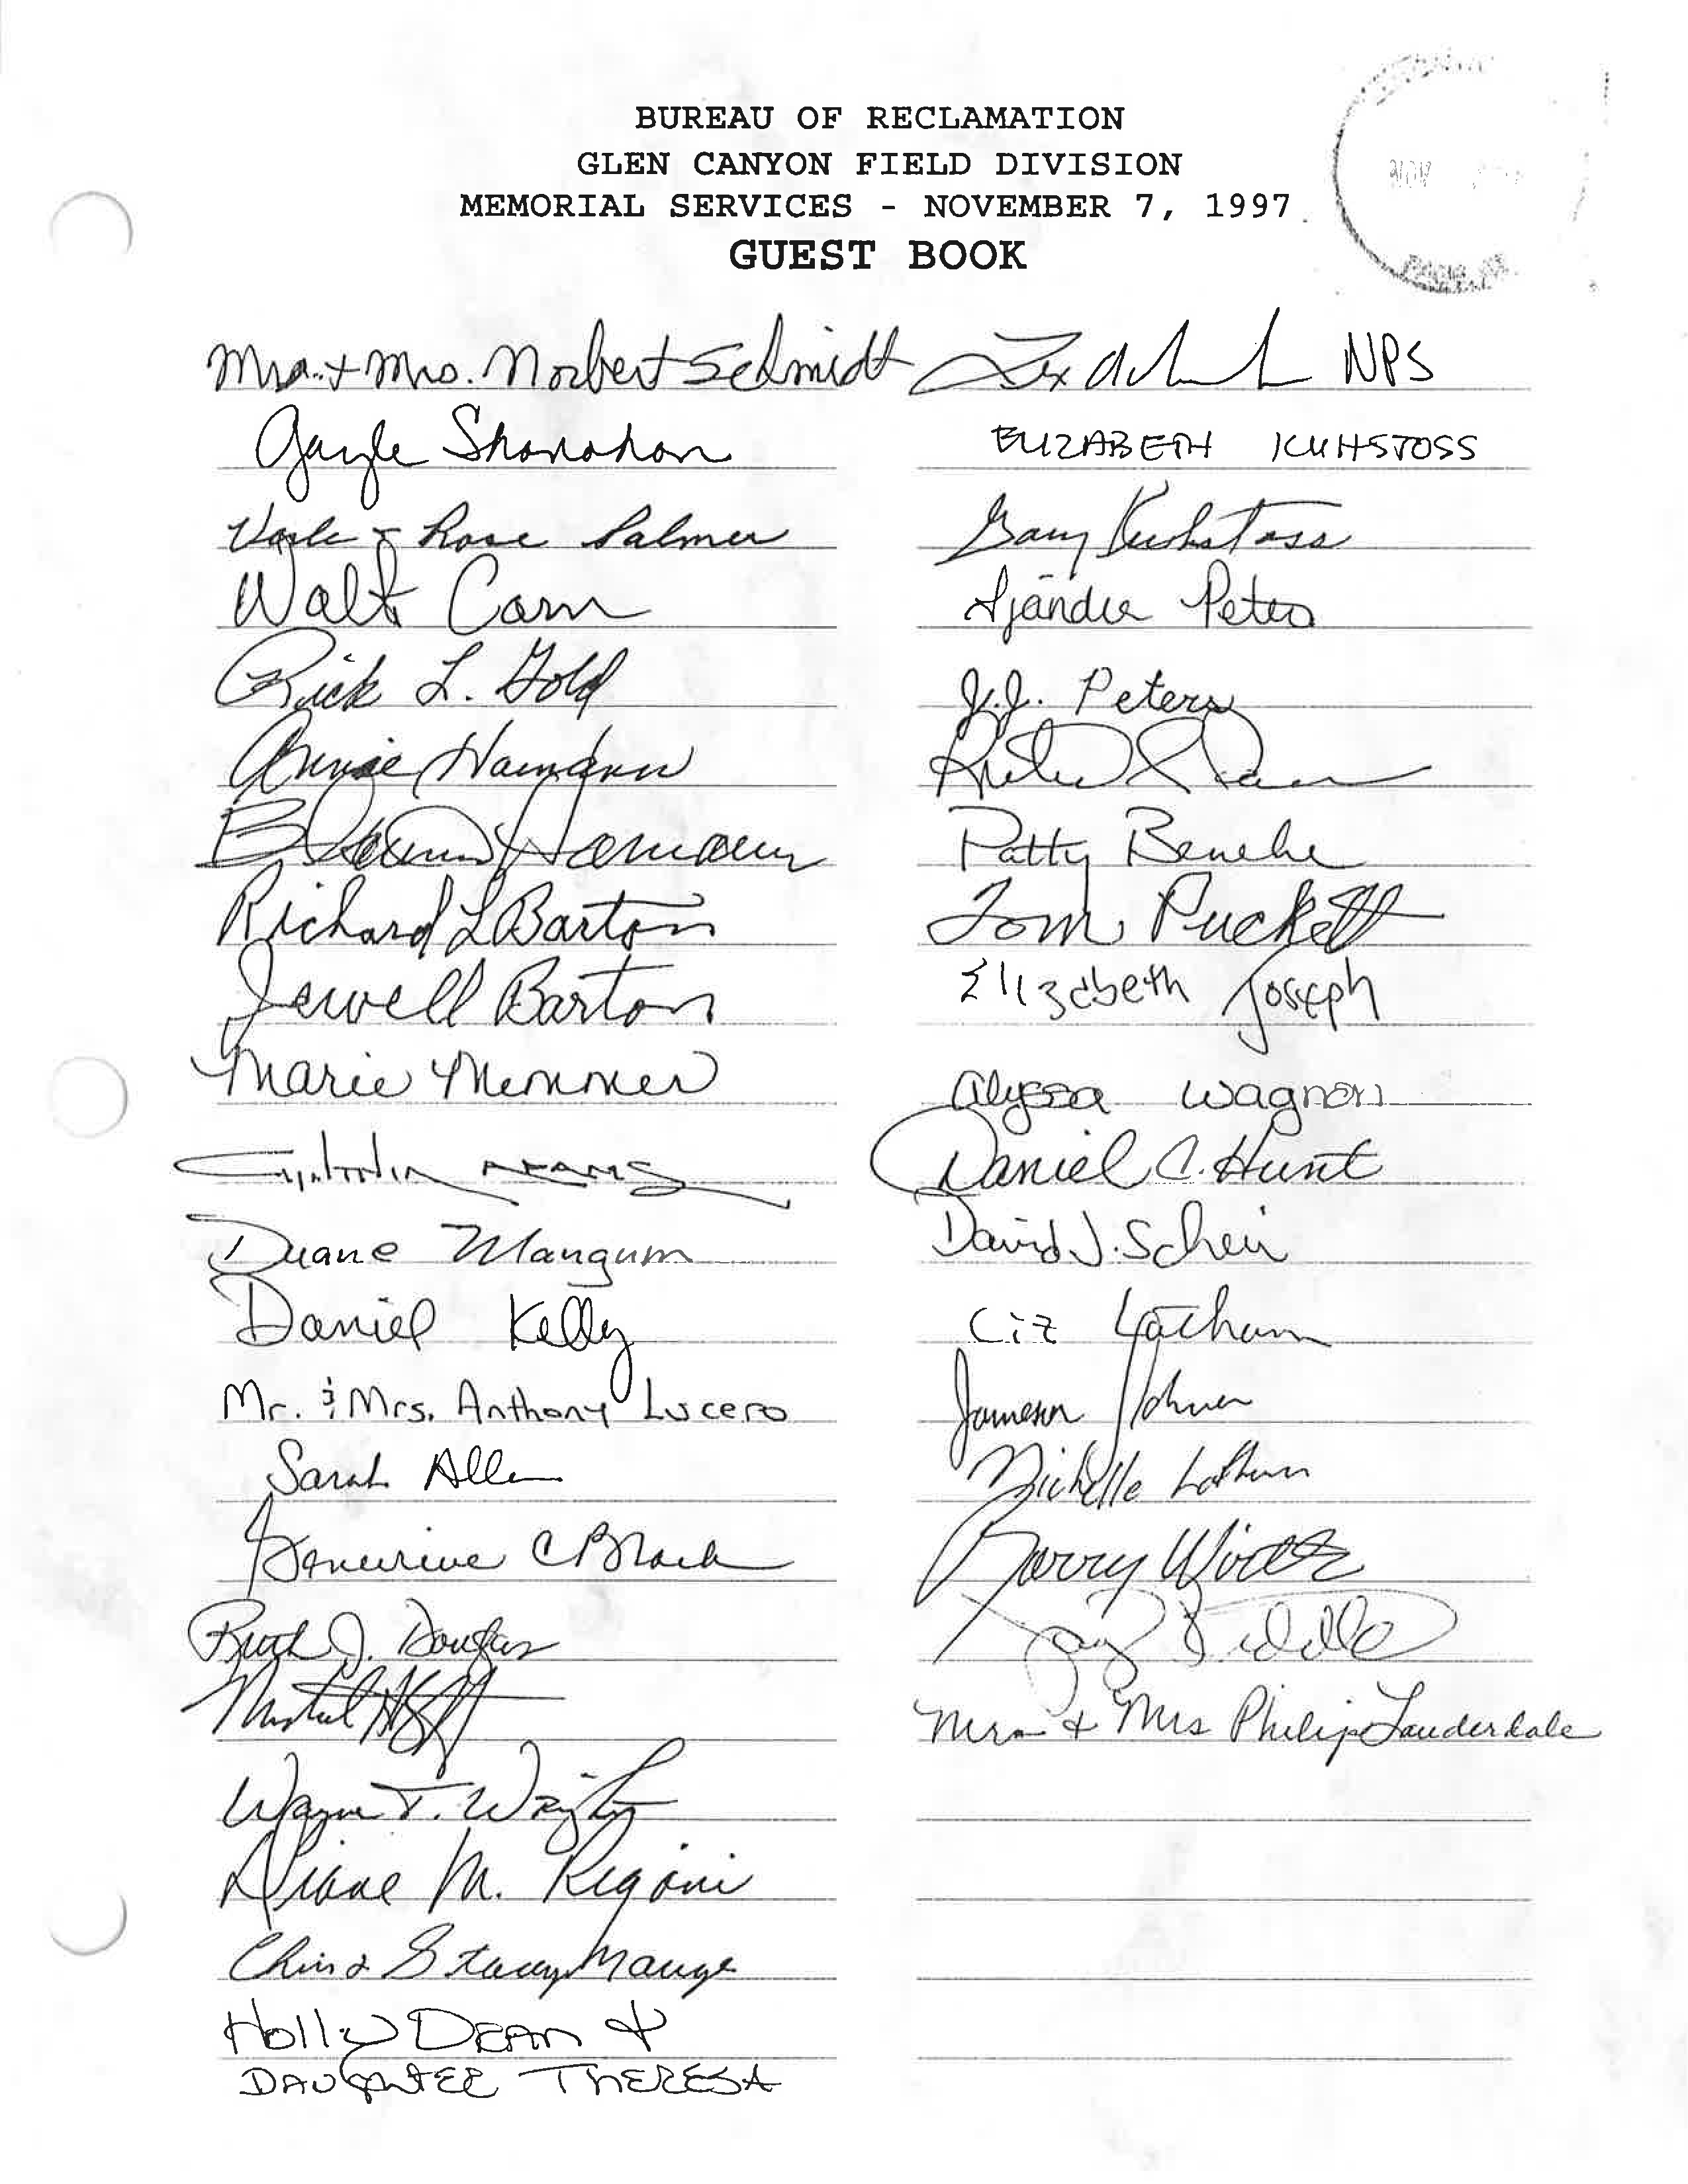 BUREAU OF RECLAMATION
GLEN CANYON FIELD DIVISION
MEMORIAL SERVICES - NOVEMBER 7, 1997
GUEST BOOK
NOV
Mr. + Mrs. Norbert Schmidt
Gayle Shanahan
& Rose Palmer
Walt Carn
Rick L. Gold
Annie Hamann
Hamann
Richard L Barton
Jewell Barton
Marie Memmer
Cynthia Adams
Duane Mangum
Daniel Kelly
Mr. & Mrs. Anthony Lucero
Sarah Allen
Genevieve C Black
Ruth J. Douglas
Wayne T. Wright
Diane M. Rigoni
Chris & Stacey Mauge
Holly DEAN &
DAUGHTER THERESA
NPS
ELIZABETH KUHSTOSS
Gary Kuhstoss
Peters
J.J. Peters
Patty Beneke
Tom Puckett
Elizabeth Joseph
Alyssa Wagnon
Daniel C. Hunt
David J. Schein
Liz Latham
Jameson
Michelle Latham
Barry Wirth
Jay
Mr & Mrs Philip Lauderdale